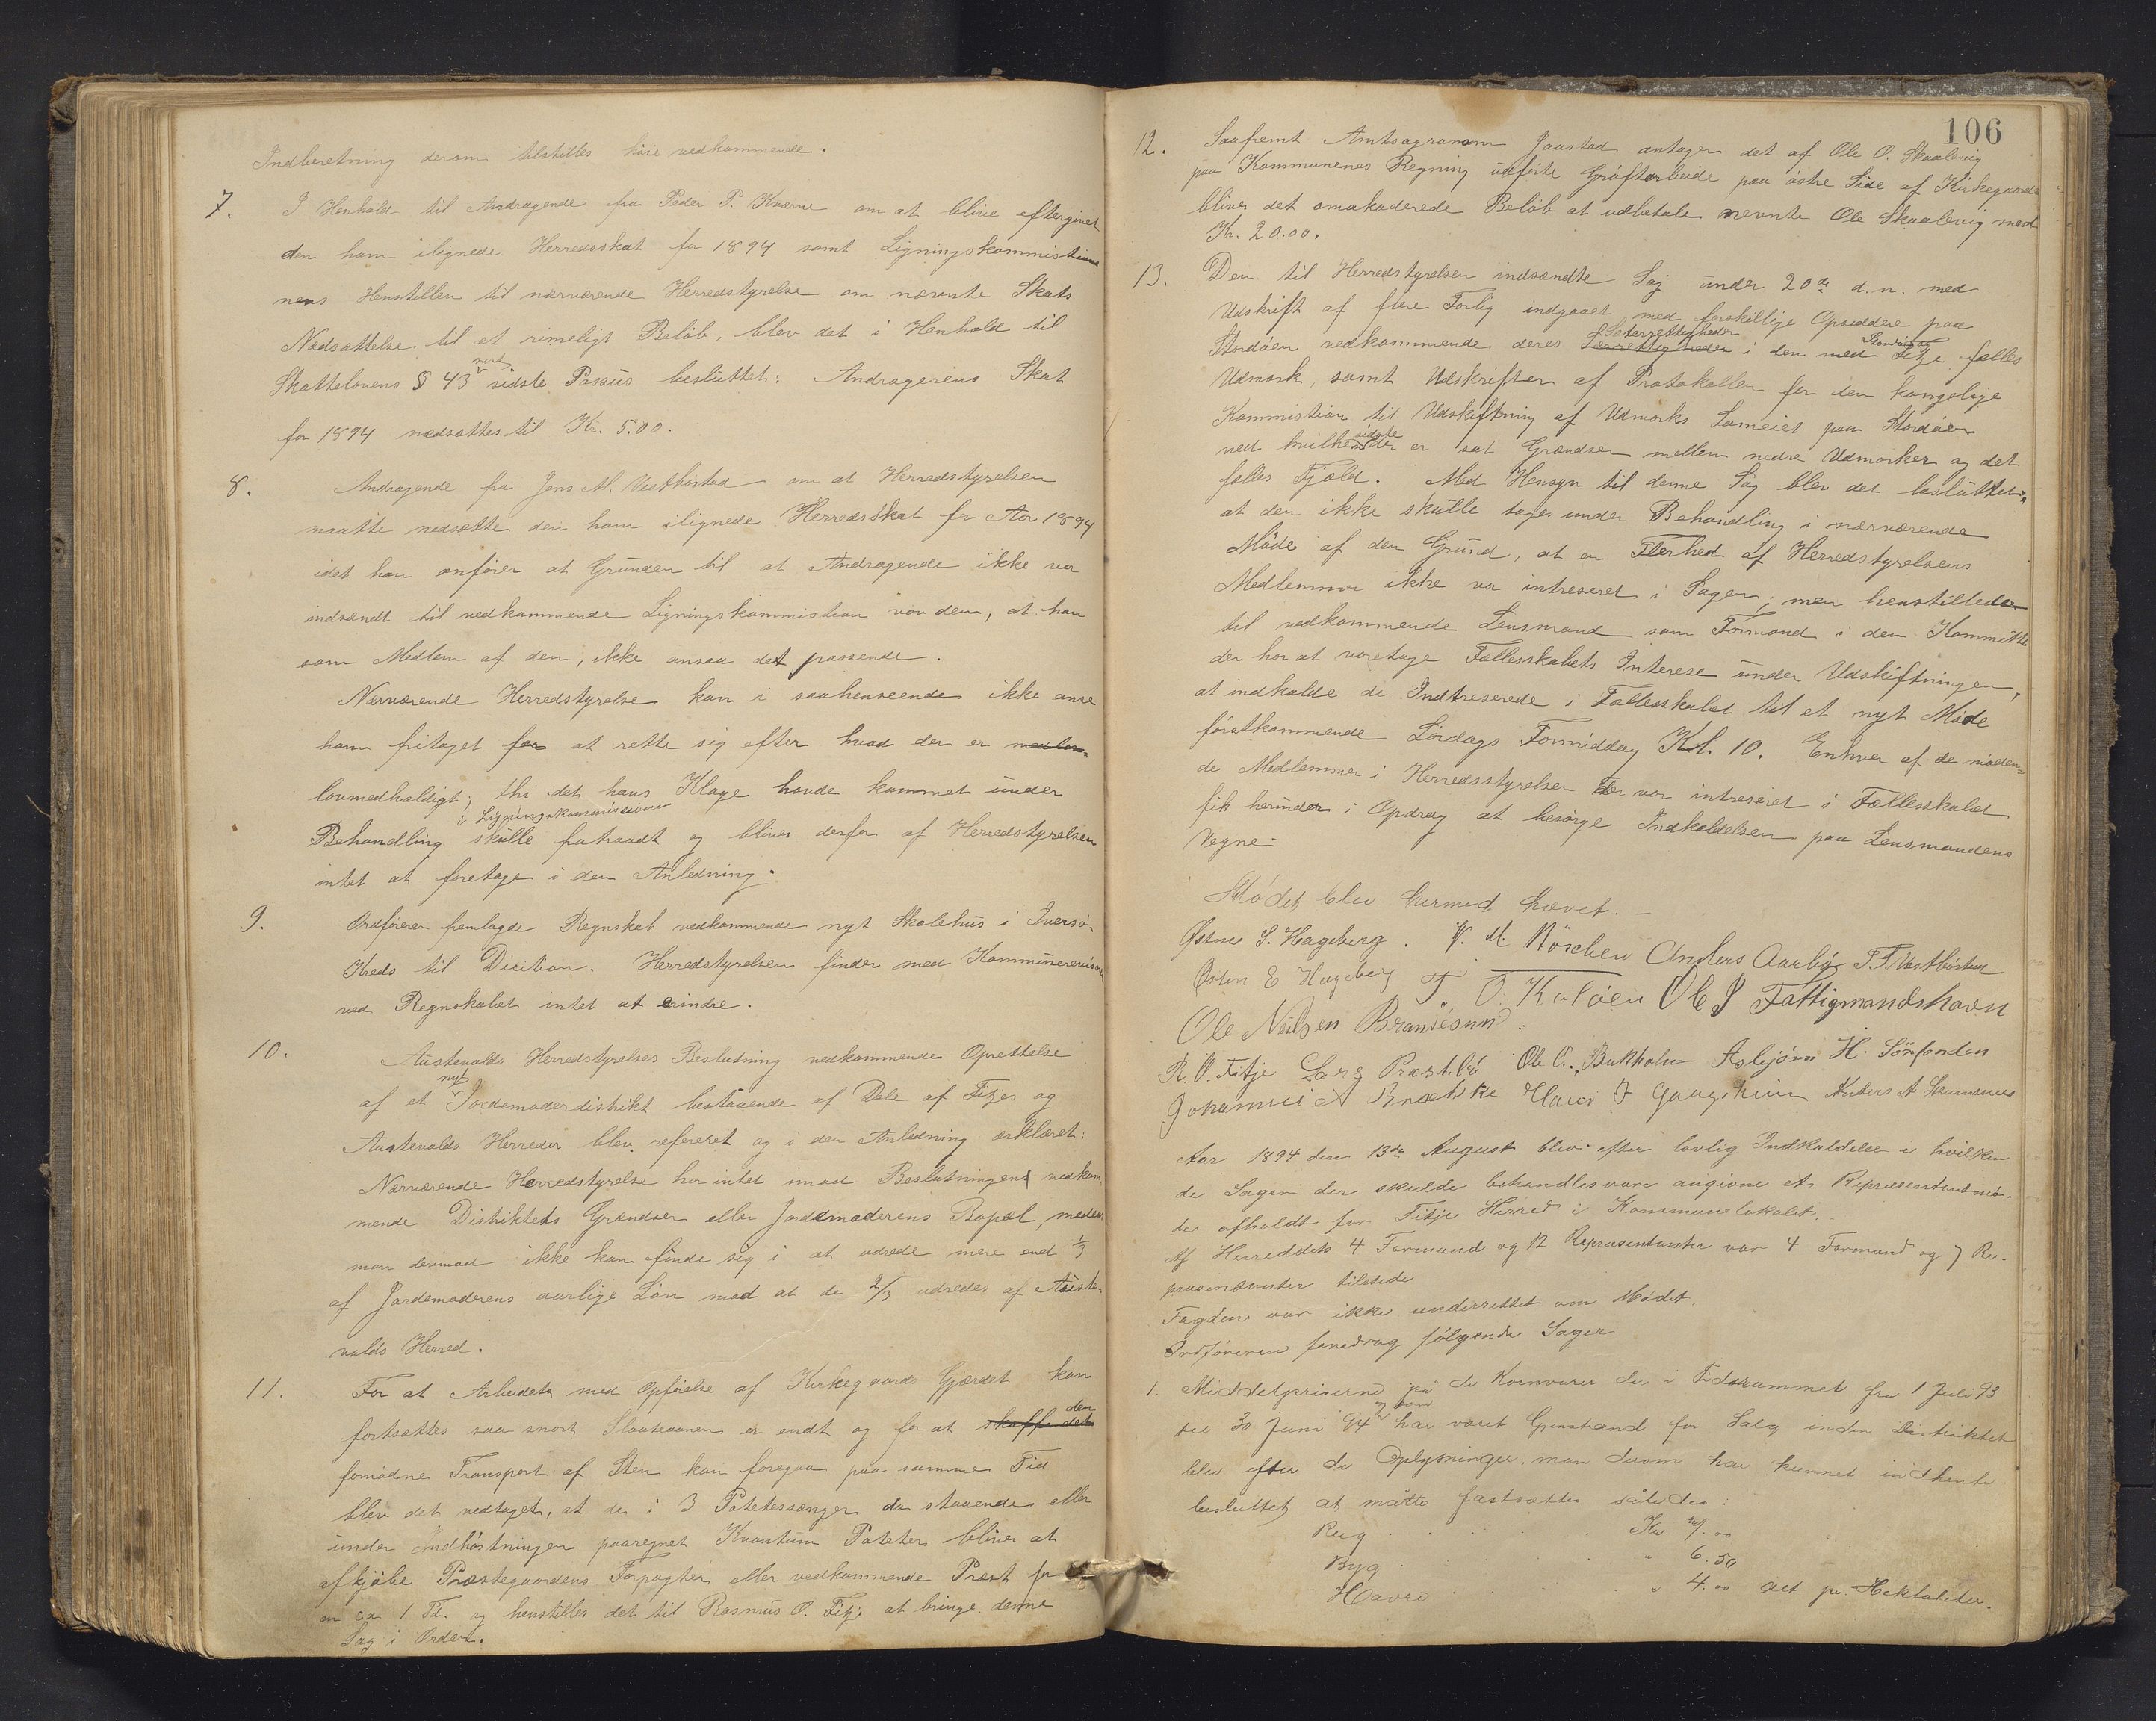 Indberetning derom tilstilles høie vedkommende.
7. I Henhold til Andragende fra Peder P. Kværne om at blive eftergivet
den ham ilignede Herredsskat for 1894 samt Ligningskommistion
nens Henstillen til nærværende Herredstyrelse om nævnte Skats
Nedsættelse til et rimeligt Beløb, blev det i Henhold til
Skattelovens § 43 næst sidste Passus besluttet: Andragerens Skat
for 1894 nedsættes til Kr. 5.00.
8. Andragende fra Jens M. Vestbøstad om at Herredstyrelsen
maatte nedsætte den ham ilignede Herredsskat for Aar 1894
idet han anfører at Grunden til at Andragende ikke var
indsendt til vedkommende Ligningskommistion var den, at han
som Medlem af den, ikke ansaa det passende.
Nærværende Herredstyrelse kan i saahenseende ikke anse
ham fritaget for at rette sig efter hvad der er medlov-
lovmedholdigt; thi idet hans Klage havde kommet under
Behandling i Ligningskommissionen skulle fratraadt og bliver derfor af Herredstyrelsen
intet at foretage i den Anledning.
9. Ordføreren fremlagde Regnskab vedkommende nyt Skolehus i Iversø-
Kreds til Dicition. Herredstyrelsen finder med Kommunerevisor
ved Regnskabet intet at erindre.
10. Austevolds Herredstyrelses Beslutning vedkommende Oprettelse
af et nyt Jordemoderdistrikt bestaaende af Dele af Fitjes og
Austevolds Herreder blev refereret og i den Anledning erklæret:
Nærværende Herredstyrelse har intet imod Beslutningens vedkom
mende Distriktets Grændser eller Jordemoderens Bopæl, medens
man derimod ikke kan finde sig i at udrede mere end 1/3
af Jordemoderens aarlige Løn mod at de 2/3 udredes af Auste-
volds Herred.
11. For at Arbeidet med Opførelse af Kirkegaards Gjærdet kan
fortsættes saa snart Slaateaanen er endt og for at skaffe det den
fornødne Transport af Sten kan foregaa paa samme Tid
blev det vedtaget, at de i 3 Potetessænger da staaende eller
under Indhøstningen paaregnet Kvantum Poteter bliver at
afkjøbe Præstegaardens Forpagter eller vedkommende Præst for
en ca 1 Td. og henstilles det til Rasmus O. Fitje at bringe denne
Sag i Orden.
106
12. Saafremt Amtsagronom Jaastad antager det af Ole O. Skaalevig
paa Kommunenes Regning udførte Grøftarbeide paa østre Side af Kirkegaarden
bliver det omakoderede Beløb at udbetale nevnte Ole Skaalevig med
Kr. 20.00.
13. Den til Herredstyrelsen indsendte Sag under 20de d.m. med
Udskrift af flere Forlig indgaaet med forskillige Opsiddere paa
Stordøen vedkommende deres Særrettigheder Seterrettigheder i den med Standøen og Fitje fælles
Udmark, samt Udskrifter af Protokollen for den kongelige
Kommistion til Udskiftning af Udmarks Sameiet paa Stordøen
ved hvilken sidste der er sat Grændser mellem nedre Udmarker og det
felles Fjæld. Med Hensyn til denne Sag blev det besluttet:
at den ikke skulle tages under Behandling i nærværende
Møde af den Grund, at en Flerhed af Herredstyrelsens
Medlemmer ikke var intreseret i Sagen; men henstillede
til vedkommende Lensmand som Formand i den Kommitte
der har at varetage Fællesskabets Interese under Udskiftningen,
at indkalde de Indtreserede i Fællesskabet til et nyt Møde
førstkommende Lørdags Formiddag Kl. 10. Enhver af de møden-
de Medlemmer i Herredsstyrelsen der var intreseret i Fællesskabet
fik herunder i Opdrag at besørge Indkaldelsen paa Lensmandens
Vegne.
Mødet blev hermed hævet.
Østen S. Hageberg. V. M. Røschen Anders Aarbø T. T. Vestbøstad
Østen E Hageberg T. O. Kaløen Ole J Fattigmandshavn
Ole Neilsen Brandesund.
R. O. Fitje Lars Prestbø Ole O. Bukholm Asbjørn H. Sørfonden
Johannes A Knække Hans J Gaugstein Anders A
Aar 1894 den 13de August blev efter lovlig Indkaldelse i hvilken
de Sager der skulde behandles vare angivne et Representantmø-
de afholdt for Fitje Herred i Kommunelokalet.
Af Herreddets 4 Formænd og 12 Representanter var 4 Formænd og 7 Re-
præsentanter tilstede
Fogden var ikke underrettet om Mødet.
Ordføreren foredrag følgende Sager
1. Middelpriserne på de Kornvarer der i Tidsrummet fra 1 Juli 93
til 30 Juni 94 har været Gjenstand for Salg inden Distriktet
blev efter de Oplysninger, man derom har kunnet indhente
besluttet at måtte fastsættes således:
Rug Kr
Byg " 6.50
Havre " 4.00 alt pr. Hektoliter.